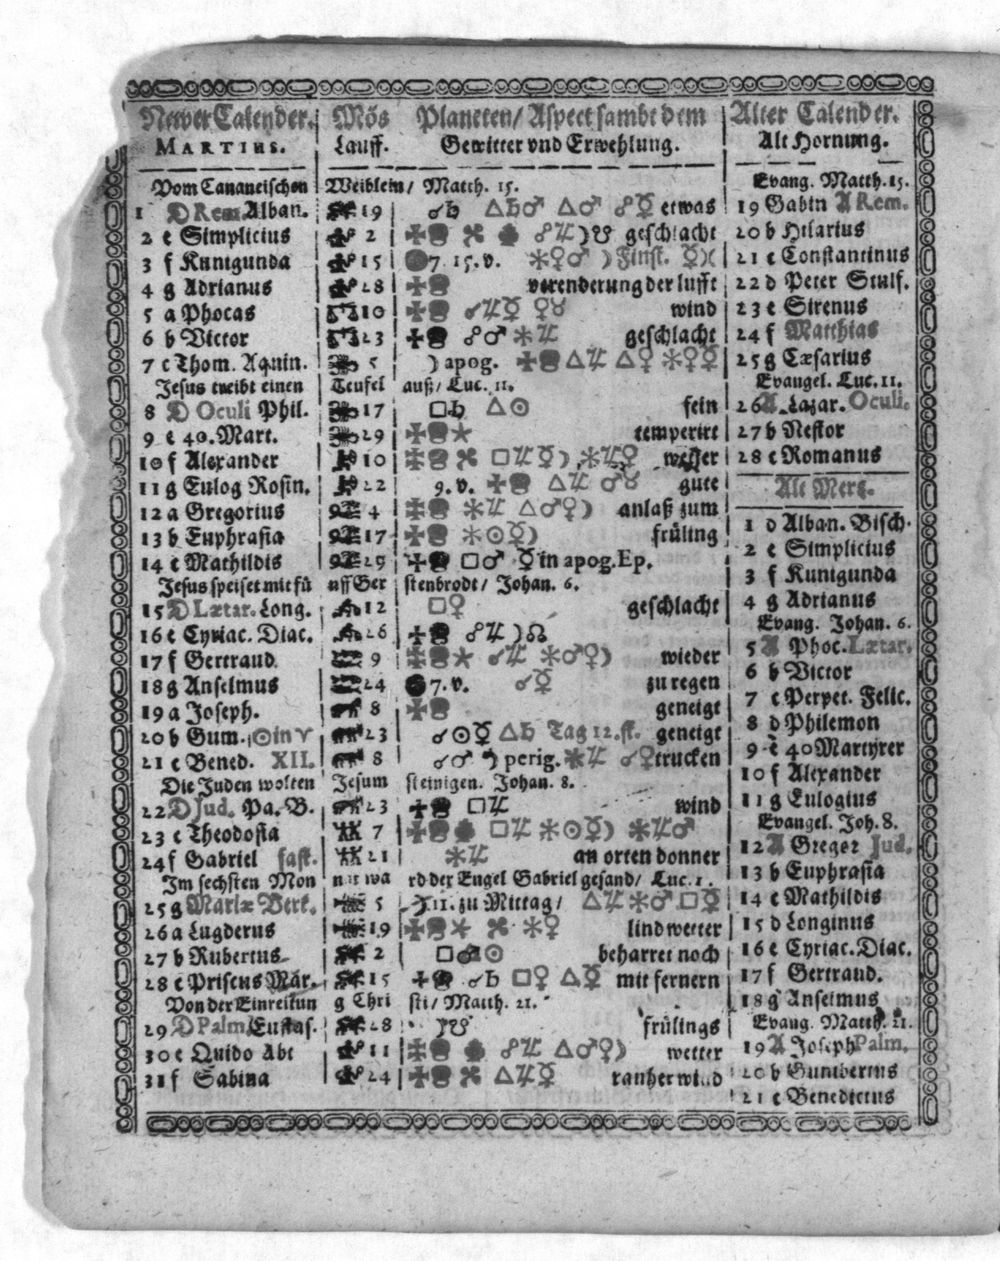 Newer Calender. Mõs Planeten/ Aspect sambt dem Alter Calender.
MARTIUS. Lauff. Gewitter vnd Erwehlung. Alt Hornung.
Vom Cananeischen Weiblein/ Matth. 15. Evang. Matth. 15.
1 D Rem. Alban. 19 ☌♄ △♄♂ △♂ ☍☿ etwas 19 Gabin A Rem.
2 e Simplicius 2 ☍♃☽☋ geschlacht 20 b Hilarius
3 f Kunigunda 15 7. 15. v. ✶♀♂ ☽ Finst. 21 c Constantinus
4 g Adrianus 28 verenderung der lufft 22 d Peter Stulf.
5 a Phocas 10 ☌♃☿ ♀♉ wind 23 e Sirenus
6 b Victor 23 ☍♂ ✶♃ geschlacht 24 f Matthias
7 c Thom. Aquin. 5 ☽ apog. △♃ △♀ ✶♀☿ 25 g Cæsarius
Jesus treibt einen Teufel auß/ Luc. 11. Evangel. Luc. 11.
8 D Oculi Phil. 17 □♄ △☉ fein 26 A Lazar. Oculi.
9 e 40. Mart. 29 temperirt 27 b Nestor
10 f Alexander 10 □♃☿☽ ✶♃♀ wetter 28 c Romanus
11 g Eulog Rosin. 22 9. v. △♃ ♂♉ gute Alt Mertz.
12 a Gregorius 4 ✶♃ △♂♀☽ anlaß zum
13 b Euphrasia 17 ✶☉☿☽ früling 1 d Alban. Bisch.
14 c Mathildis 29 □♂ ☿ in apog. Ep. 2 e Simplicius
Jesus speiset mit fünff Gerstenbrodt/ Johan. 6. 3 f Kunigunda
15 D Lætar. Long. 12 □♀ geschlacht 4 g Adrianus
16 e Cyriac. Diac. 26 ☍♃☽☊ Evang. Johan. 6.
17 f Gertraud 9 ☌♃ ✶♂♀☽ wieder 5 A Phoc. Lætar.
18 g Anselmus 24 7. v. ☌☿ zu regen 6 b Victor
19 a Joseph. 8 geneigt 7 c Perpet. Felic.
20 b Gum. ☉ in ♈ 23 ☌☉☿ △♄ Tag 12. st. geneigt 8 d Philemon
21 c Bened. XII. 8 ☌♂ ☽ perig. ✶♃ ☌♀ trucken 9 e 40 Martyrer
Die Juden wolten Jesum steinigen. Johan. 8. 10 f Alexander
22 D Jud. Pa. B. 23 □♃ wind 11 g Eulogius
23 e Theodosia 7 □♃ ✶☉☿☽ ✶♃♂ Evangel. Joh. 8.
24 f Gabriel fast. 21 ✶♃ an orten donner 12 A Gregor Jud.
Im sechsten Mon nat ward der Engel Gabriel gesand/ Luc. 1. 13 b Euphrasia
25 g Mariæ Verk. 5 11. zu Mittag/ △♃✶♂□☿ 14 c Mathildis
26 a Lugderus 19 ✶♀ lind wetter 15 d Longinus
27 b Rubertus 2 □♂ ☉ beharret noch 16 e Cyriac. Diac.
28 c Priscus Mär. 15 ☌♄ □♀ △☿ mit fernern 17 f Gertraud.
Von der Einreitung Christi/ Matth. 21. 18 g Anselmus
29 D Palm. Eustas. 28 ☽☋ frülings Evang. Matth. 21.
30 e Quido Abt 11 ☍♃ △♂♀☽ wetter 19 A Joseph Palm.
31 f Sabina 24 △♃☿ rauher wind 20 b Guntbertus
21 c Benedictus